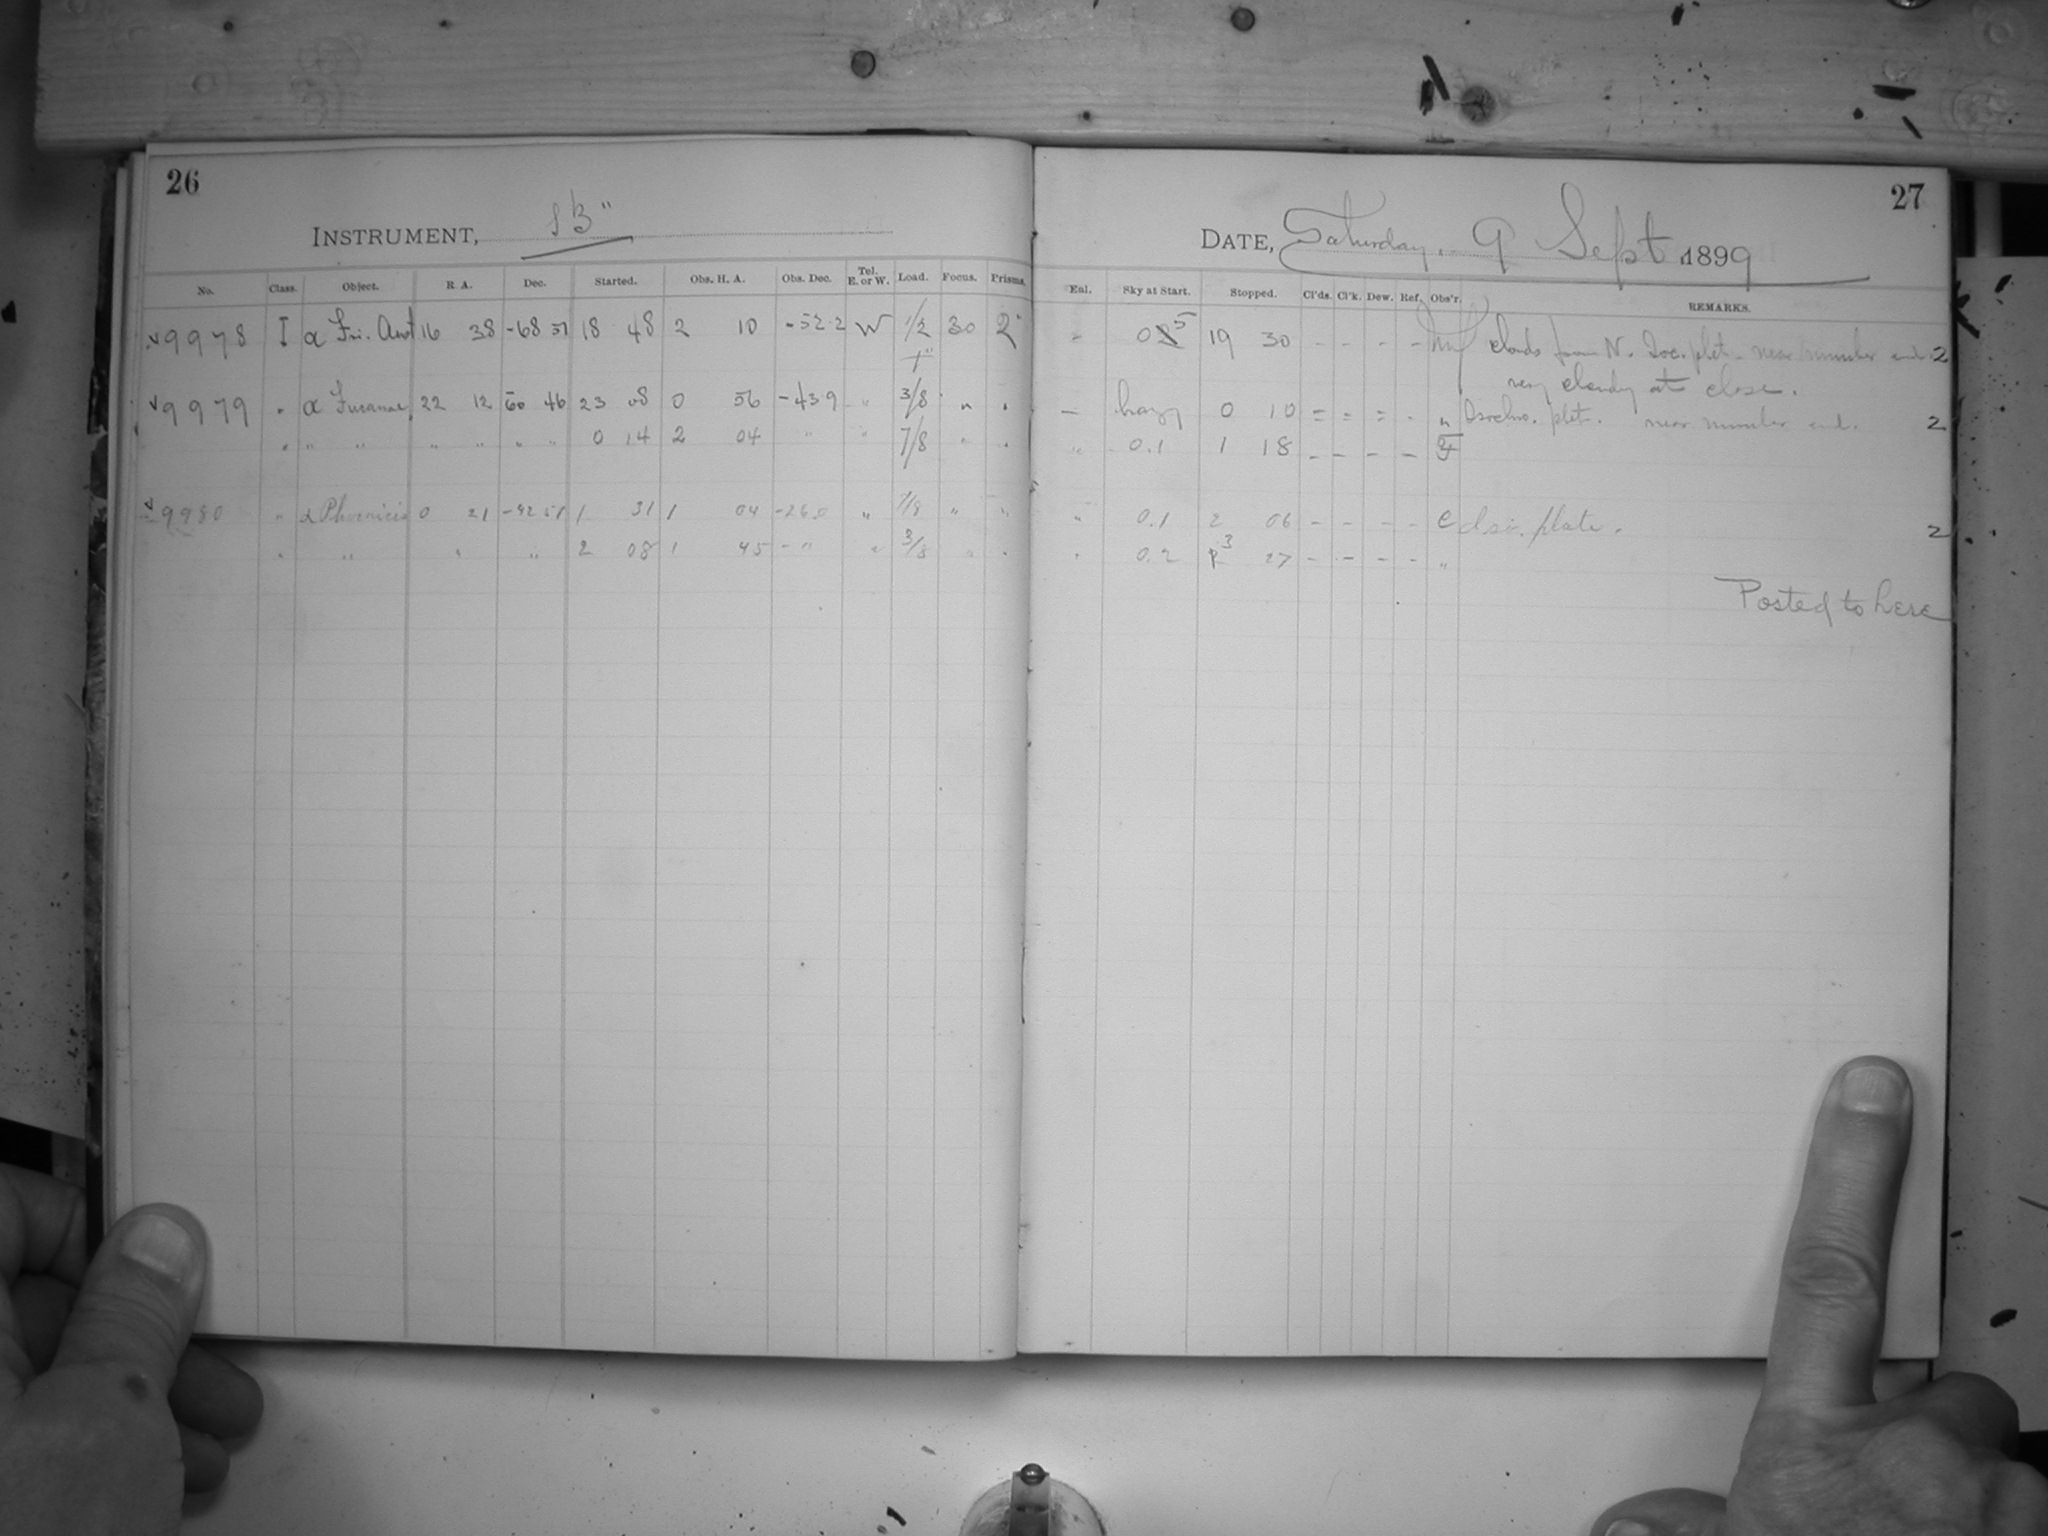 26
INSTRUMENT,
27
DATE, Saturday, 9 Sept 1899
No. Class. Object. R. A. Dec. Started. Obs. H. A. Obs. Dec. Tel. E. or W. Load. Focus. Prisms. Eal. Sky at Start. Stopped. Cl'ds. Cl'k. Dew. Ref. Obs'r. REMARKS.
√9978 I α Tri. Aust 16 38 -68 51 18 48 2 10 -52.2 W 1/2 30 2 " 05 19 30 - - - - clouds from N. Iso. plate near number end. 2
very cloudy at close.
√9979 " α Tucanae 22 12 60 46 23 08 0 56 -439 " 3/8 " " - hazy 0 10 = = = - " Isochro. plt. near number end. 2
" " " " " " " 0 14 2 04 " " 7/8 " " " 0.1 1 18 - - - -
√9980 " α Phoenicis 0 21 -42 51 1 31 1 04 -26.0 " 7/8 " " " 0.1 2 06 - - - - C Iso. plate. 2
" " " " 2 08 1 45 - " " 3/8 " " " 0.2 3 27 - - - - "
Posted to here